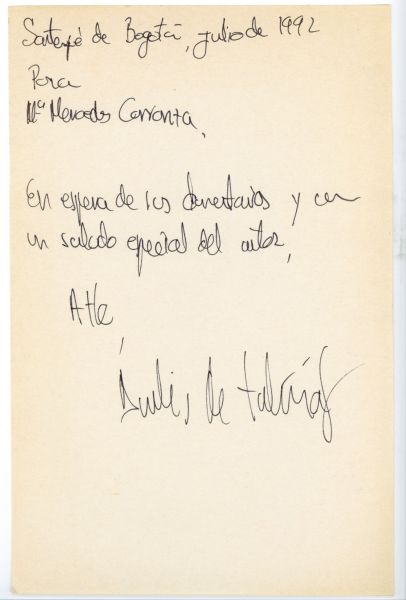 Santafé de Bogotá, julio de 1992
Para
Mª Mercedes Carranza,
En espera de sus comentarios y con
un saludo especial del autor,
Atte
de